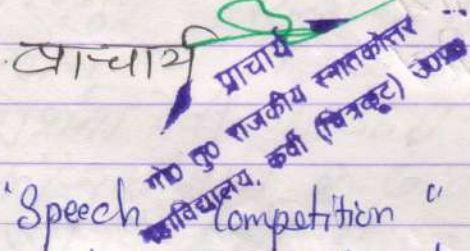 प्राचार्य
प्राचार्य
गो० तु० राजकीय स्नातकोत्तर
महाविद्यालय, कर्वी (चित्रकूट) उ०प्र०
"Speech Competition"